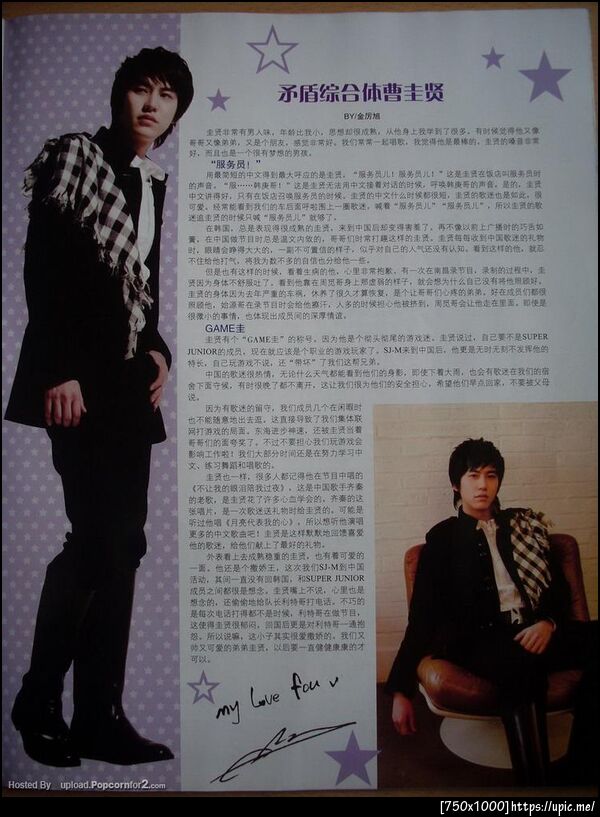 矛盾综合体曹圭贤
BY/金厉旭
圭贤非常有男人味，年龄比我小，思想却很成熟，从他身上我学到了很多。有时候觉得他又像
哥哥又像弟弟，又是个朋友，感觉非常好。我们常常一起唱歌，我觉得他是最棒的，圭贤的嗓音非常
好，而且也是一个很有梦想的男孩。
“服务员！”
用最简短的中文得到最大呼应的是圭贤。“服务员儿！服务员儿！”这是圭贤在饭店叫服务员时
的声音。“服……韩庚哥！”这是圭贤无法用中文接着对话的时候，呼唤韩庚哥的声音。是的，圭贤
中文讲得好，只有在饭店召唤服务员的时候。圭贤的中文什么时候都很短，圭贤的歌迷也是如此，很
可爱。经常能看到我们的车后面呼啦围上一圈歌迷，喊着“服务员儿”“服务员儿”，所以圭贤的歌
迷追圭贤的时候只喊“服务员儿”就够了。
在韩国，总是表现得很成熟的圭贤，来到中国后却变得害羞了，再不像以前上广播时的巧舌如
簧。在中国做节目时总是温文内敛的，哥哥们时常打趣这样的圭贤。圭贤每每收到中国歌迷的礼物
时，眼睛会睁得大大的，一副不可置信的样子，似乎对自己的人气还没有认知。看到这样的他，就忍
不住给他打气，将我为数不多的自信也分给他一些。
但是也有这样的时候，看着生病的他，心里非常抱歉，有一次在南昌录节目，录制的过程中，圭
贤因为身体不舒服吐了。看到他靠在周觅哥身上那虚弱的样子，就会想为什么自己没有将他照顾好。
圭贤的身体因为去年严重的车祸，休养了很久才算恢复，是个让哥哥们心疼的弟弟。好在成员们都很
照顾他，始源哥在录节目时会给他擦汗，人多的时候担心他被挤到，周觅哥会让他走在里面。即使是
很微小的事情，也体现出成员间的深厚情谊。
GAME圭
圭贤有个“GAME圭”的称号，因为他是个彻头彻尾的游戏迷。圭贤说过，自己要不是SUPER
JUNIOR的成员，现在就应该是个职业的游戏玩家了。SJ-M来到中国后，他更是无时无刻不发挥他的
特长，自己玩游戏不说，还“带坏”了我们这帮兄弟。
中国的歌迷很热情，无论什么天气都能看到他们的身影，即使下着大雨，也会有歌迷在我们的宿
舍下面守候，有时很晚了都不离开，这让我们很为他们的安全担心，希望他们早点回家，不要被父母
说。
因为有歌迷的留守，我们成员几个在闲暇时
也不能随意地出去逛，这直接导致了我们集体联
网打游戏的局面。东海进步神速，还被圭贤当着
哥哥们的面夸奖了。不过不要担心我们玩游戏会
影响工作啦！我们大部分时间还是在努力学习中
文、练习舞蹈和唱歌的。
圭贤也一样，很多人都记得他在节目中唱的
《不让我的眼泪陪我过夜》，这是中国歌手齐秦
的老歌，是圭贤花了许多心血学会的。齐秦的这
张唱片，是一次歌迷送礼物时给圭贤的。可能是
听过他唱《月亮代表我的心》，所以想听他演唱
更多的中文歌曲吧！圭贤是这样默默地回馈喜爱
他的歌迷，给他们献上了最好的礼物。
外表看上去成熟稳重的圭贤，也有着可爱的
一面。他还是个撒娇王，这次我们SJ-M到中国
活动，其间一直没有回韩国，和SUPER JUNIOR
成员之间都很是想念。圭贤嘴上不说，心里也是
想念的，还偷偷地给队长利特哥打电话。不巧的
是每次电话打得都不是时候，利特哥在做节目，
这使得圭贤很郁闷，回国后更是对利特哥一通抱
怨。所以说嘛，这小子其实很爱撒娇的。我们又
帅又可爱的弟弟圭贤，以后要一直健健康康的才
可以。
my Love
Hosted By upload.Popcornfor2.com
[750x1000]https://upic.me/